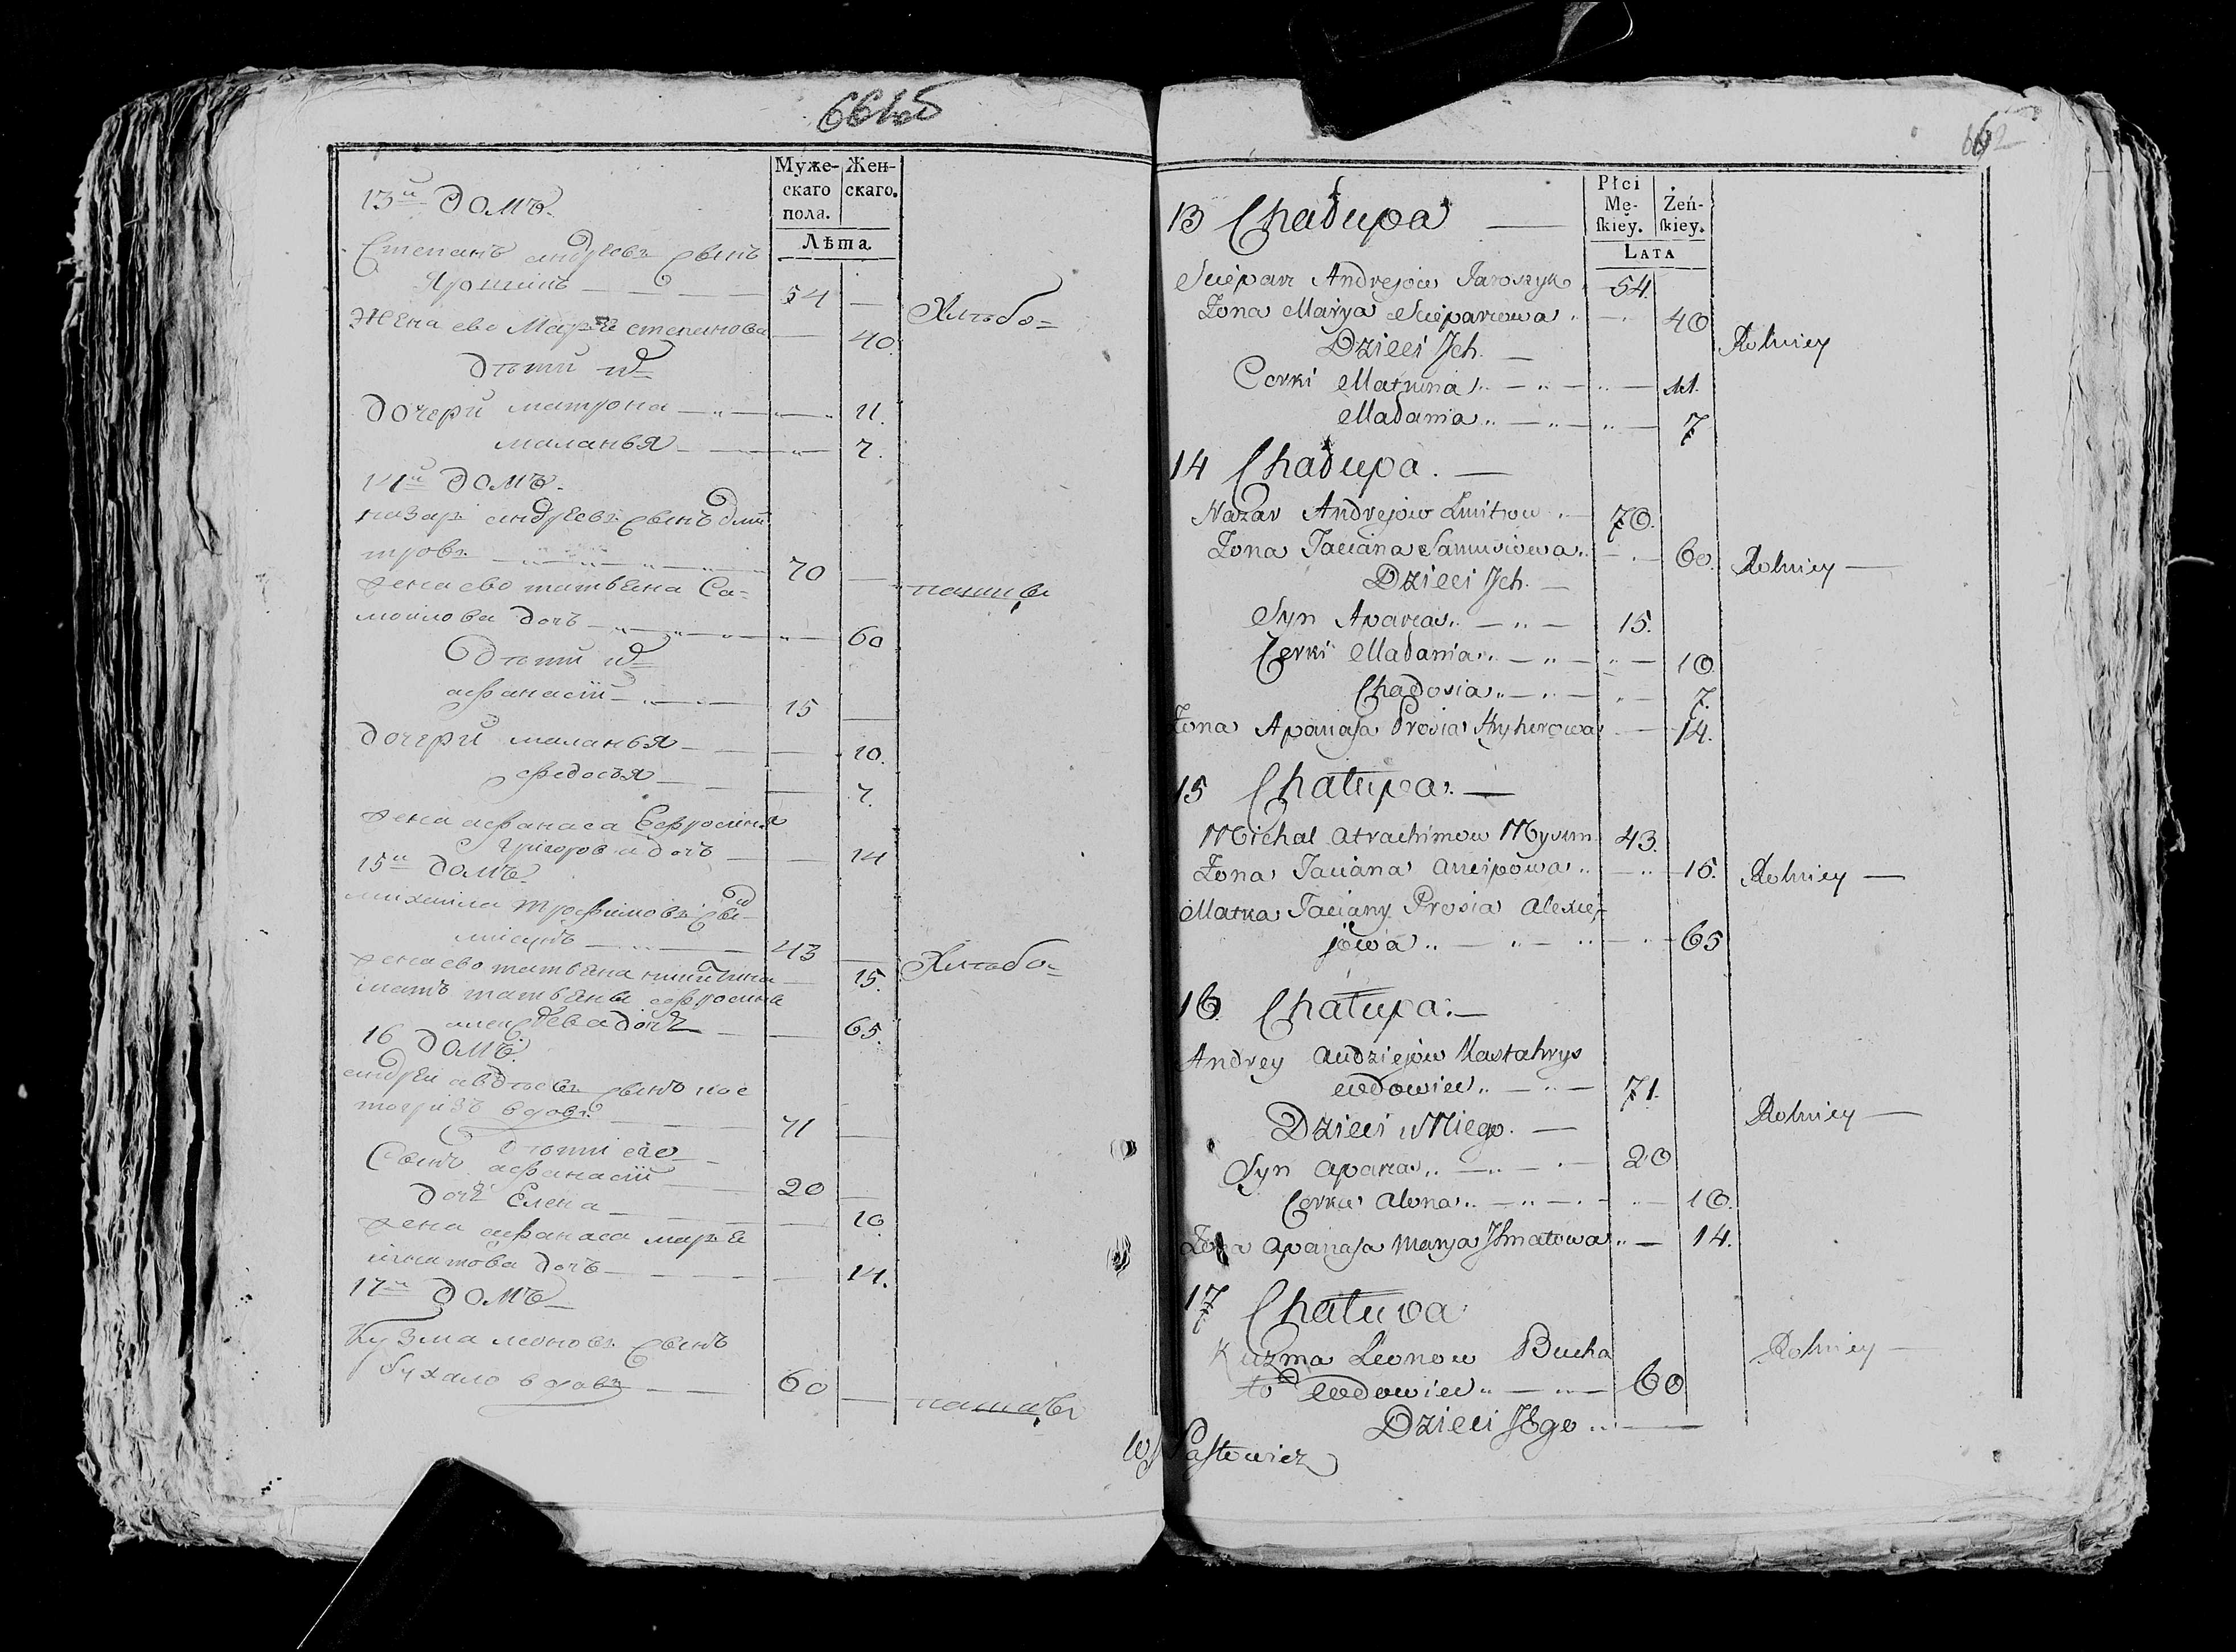 661об
Муже-
скаго
пола.
Жен-
скаго.
Лѣта
13й домъ.
Степанъ андреевъ сынъ
Ярошикъ — 54
Хлѣбо=
жена ево Марья степанова — 40.
дѣти их
дочери матрона — 11.
маланья — 7.
14й домъ.
назар андреевъ сынъ дми
тровъ — 70
пашцы
жена ево татьяна Са=
мойлова дочь — 60
дѣти их
афанасій — 15
дочери маланья — 10.
федосья — 7.
жена афанаса Ефросинья
григорова дочь — 14
15й домъ.
михайла трофимовъ сы-
мисунъ — 43
Хлѣбо=
жена ево татьяна — 15.
мать татьяны ефросинья
алексѣева дочь — 65.
16 домъ.
андрей авдѣевъ сынъ кос
тогризъ вдовъ — 71
дѣти его
Сынъ афанасій — 20
дочь Елена — 10
жена афанаса марья
игнатова дочь — 14.
17й домъ
Кузма леоновъ сынъ
бухало вдовъ — 60
пашцы
662
Płci
Mę-
skiey.
Żeń-
skiey.
Lata
13 Chałupa —
Sciepan Andrejow Jaroszyk 54.
Żona Marya Sciepanowa 40
Rolnicy
Dzieci Jch. —
Corki Matruna 11.
Małania 7
14 Chałupa. —
Nazar Andrejow Dmitrow 70.
Żona Taciana Samusiowa 60.
Rolnicy —
Dzieci Jch. —
Syn Apanas 15.
Corki Małania 10.
Chadosia 7.
Żona Apanasa Prosia Hryhorowa 14.
15 Chałupa. —
Michał Atrachimow Mysun 43.
Żona Taciana Ancipowa 15.
Rolnicy —
Matka Taciany Prosia Alexie-
jowa 65
16 Chałupa. —
Andrey Audziejow Kastahrys
wdowiec 71.
Rolnicy —
Dzieci u Niego. —
Syn apanas 20
Corka Alona 10.
Żona Apanasa Marya Jhnatowa 14.
17 Chałupa
Kuzma Leonow Bucha
ło wdowiec 60
Rolnicy —
Dzieci Jego —